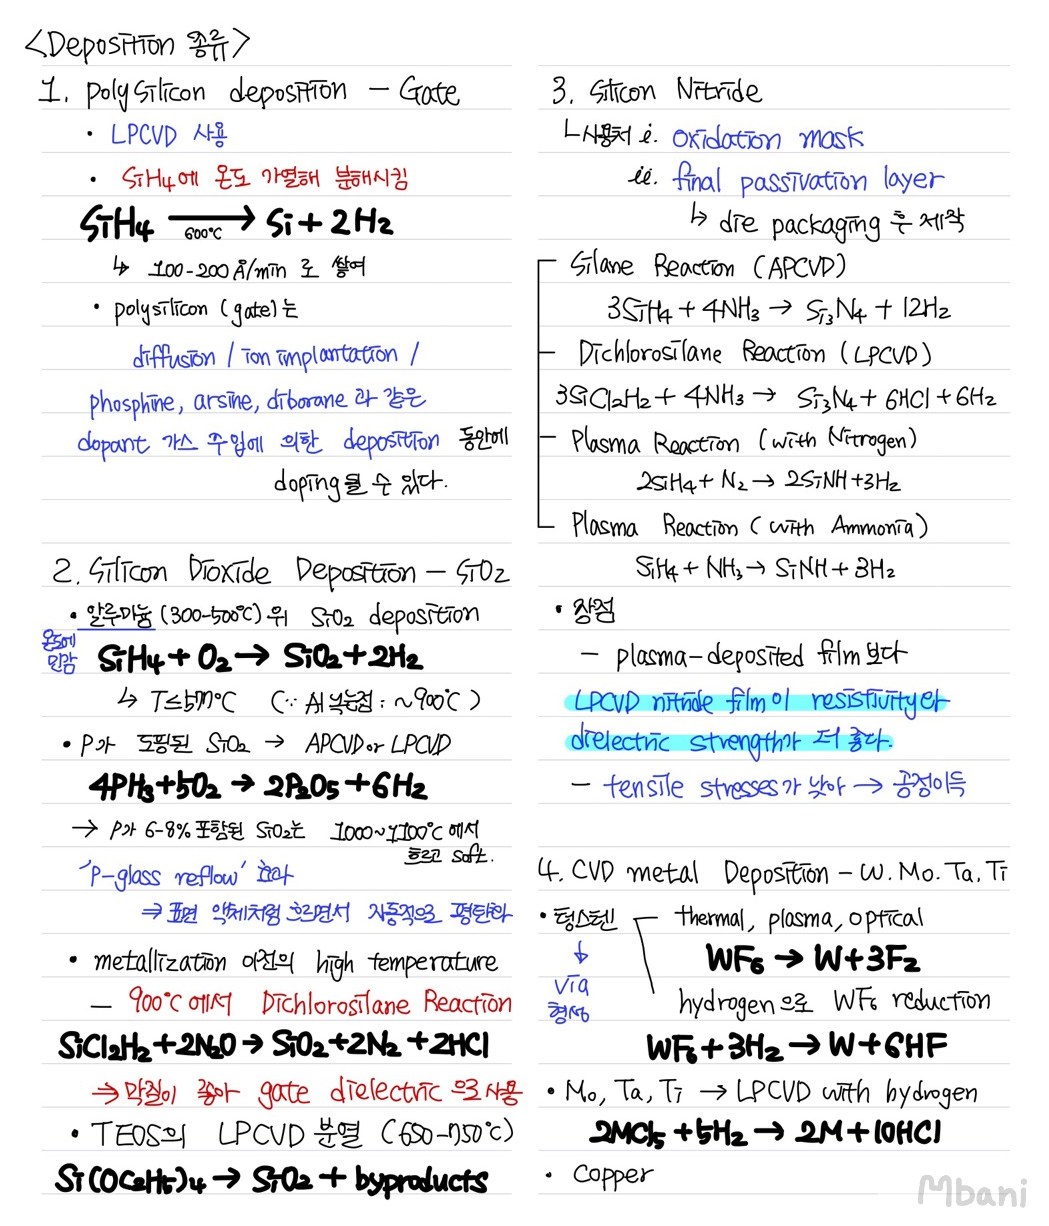 <Deposition 종류>
1. polysilicon deposition - Gate
• LPCVD 사용
• SiH4에 온도 가열해 분해시킴
SiH4 → Si + 2H2
600℃
↳ 100-200 Å/min 로 쌓여
• polysilicon (gate)는
diffusion / ion implantation /
phosphine, arsine, diborane 과 같은
dopant 가스 주입에 의한 deposition 동안에
doping될 수 있다.
2. Silicon Dioxide Deposition - SiO2
• 알루미늄 (300-500℃) 위 SiO2 deposition
온도에
민감
SiH4 + O2 → SiO2 + 2H2
↳ T≤577℃ (∵ Al 녹는점 : ~900℃)
• P가 도핑된 SiO2 → APCVD or LPCVD
4PH3+5O2 → 2P2O5 + 6H2
→ P가 6-8% 포함된 SiO2는 1000~1100℃에서
흐르고 soft.
'P-glass reflow' 효과
⇒ 표면 액체처럼 흐르면서 자동적으로 평탄화
• metallization 이전의 high temperature
- 900℃에서 Dichlorosilane Reaction
SiCl2H2+2N2O → SiO2+2N2+2HCl
⇒ 막질이 좋아 gate dielectric 으로 사용
• TEOS의 LPCVD 분열 (650-750℃)
Si(OC2H5)4 → SiO2 + byproducts
3. Silicon Nitride
ㄴ사용처 i. oxidation mask
ii. final passivation layer
↳ die packaging 후 제작
Silane Reaction (APCVD)
3SiH4 + 4NH3 → Si3N4 + 12H2
Dichlorosilane Reaction (LPCVD)
3SiCl2H2 + 4NH3 → Si3N4 + 6HCl + 6H2
Plasma Reaction (with Nitrogen)
2SiH4 + N2 → 2SiNH + 3H2
Plasma Reaction (with Ammonia)
SiH4 + NH3 → SiNH + 3H2
• 장점
- plasma-deposited film 보다
LPCVD nitride film이 resistivity와
dielectric strength가 더 좋다.
- tensile stresses가 낮아 → 공정이득
4. CVD metal Deposition - W. Mo. Ta. Ti
• 텅스텐
↓
via
형성
thermal, plasma, optical
WF6 → W + 3F2
hydrogen으로 WF6 reduction
WF6 + 3H2 → W + 6HF
• Mo, Ta, Ti → LPCVD with hydrogen
2MCl5 + 5H2 → 2M + 10HCl
• Copper
Mbani